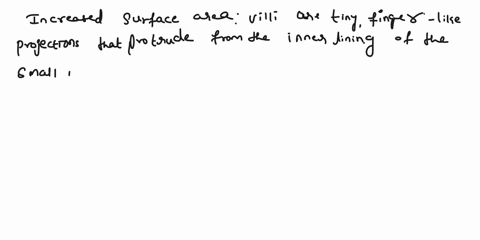 Increased surface area: villi are tiny, finger-like
projections that protrude from the inner lining of the
small